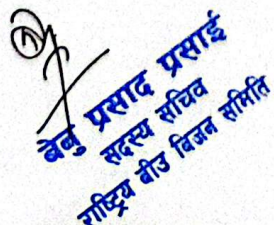 बेबु प्रसाद प्रसाई
सदस्य सचिव
राष्ट्रिय बीउ बिजन समिति